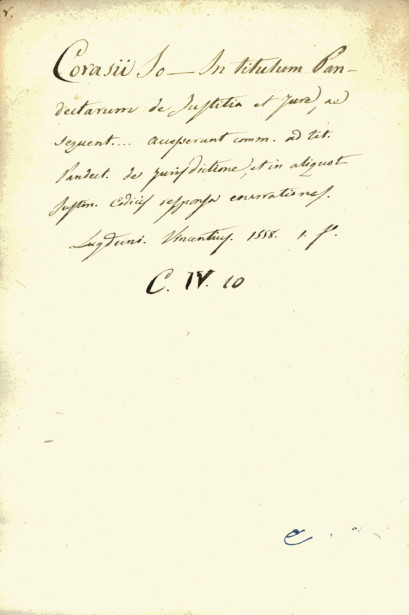 Corasii Jo — In titulum Pan-
dectarum de Justitia et Jure, ac
sequent.... accesserunt comm. ad tit.
Pandect. de jurisdictione, et in aliquot
Justin. Codicis responsa enarrationes.
Lugduni. Vincentius. 1558. 1. fº.
C. IV. 10